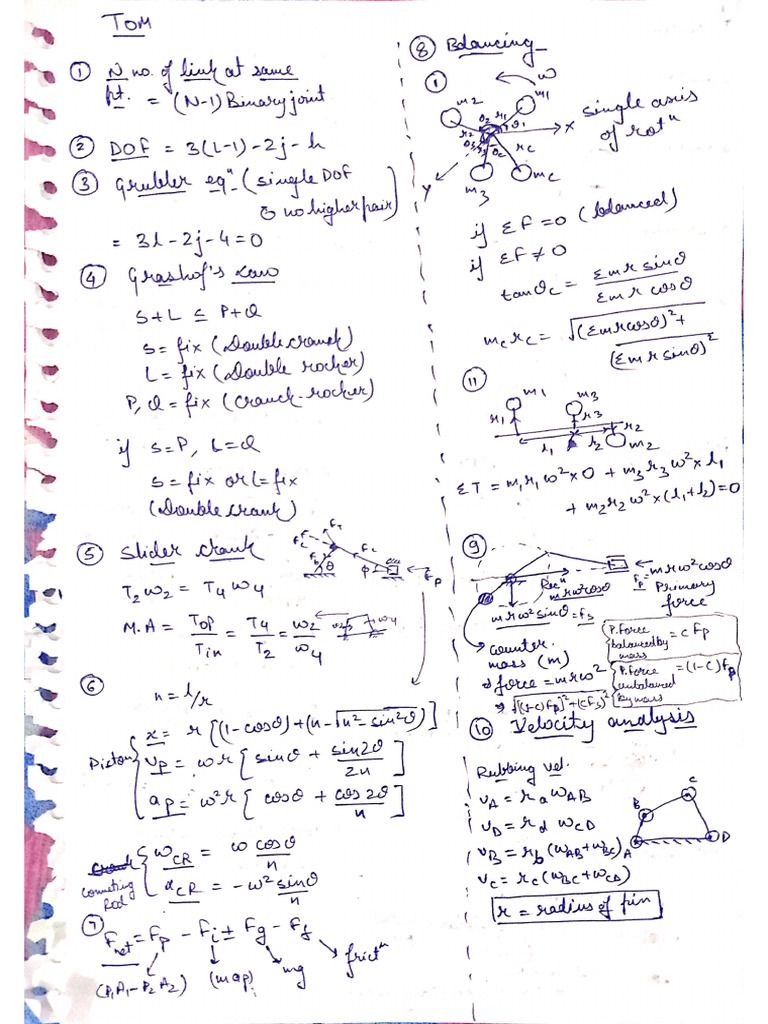 TOM
① N no. of link at same
pt. = (N-1) Binary joint
② DOF = 3(L-1)-2j-h
③ Grubler eqⁿ (single DOF
& no higher pair)
= 3l-2j-4=0
④ Grashof's Law
S+L ≤ P+Q
S = fix (Double cranck)
L = fix (Double rocker)
P, Q = fix (Cranck-rocker)
if S=P, L=Q
S = fix or L=fix
(Double crank)
⑤ Slider crank
T₂ω₂ = T₄ω₄
M.A = Top/Tin = T₄/T₂ = ω₂/ω₄
θ
φ
Fp
Fc
⑥ n = l/r
Picton
x = r[(1-cosθ)+(n-√n²sin²θ)]
vp = ωr[sinθ + sin2θ/2n]
ap = ω²r[cosθ + cos2θ/n]
connecting
Rod
ωCR = ω cosθ/n
αCR = -ω² sinθ/n
⑦ Fnet = Fp - Fi ± Fg - Ff
(P₁A₁-P₂A₂) (m ap) mg frictⁿ
⑧ Balancing
①
ω
m₂ m₁
θ₂ r₁ θ₁
r₂
θ₃ r₃ θc rc
X
Y
m₃ mc
single axis
of rotⁿ
if ΣF=0 (balanced)
if ΣF≠0
tanθc = Σmr sinθ/Σmr cosθ
mcrc = √(Σmrcosθ)²+
(Σmr sinθ)²
⑪
m₁ m₃
r₁ r₃ r₂
l₁ l₂ m₂
ΣT = m₁r₁ω²×0 + m₃r₃ω²×l₁
+ m₂r₂ω²×(l₁+l₂)=0
⑨
Fp=mrω²cosθ
Primary
force
Recⁿ
mrω²cosθ
mrω²sinθ=fs
counter
mass (m)
→ force = mrω²
→ √[(1-c)Fp]²+(cFs)²
P.force
balanced by
mass
= cFp
P.force
unbalanced
by mass
=(1-c)Fp
⑩ Velocity analysis
Rubbing vel.
vA = ra ωAB
vD = rd ωCD
vB = rb (ωAB+ωBC)
vC = rc (ωBC+ωCD)
r = radius of pin
A B C D